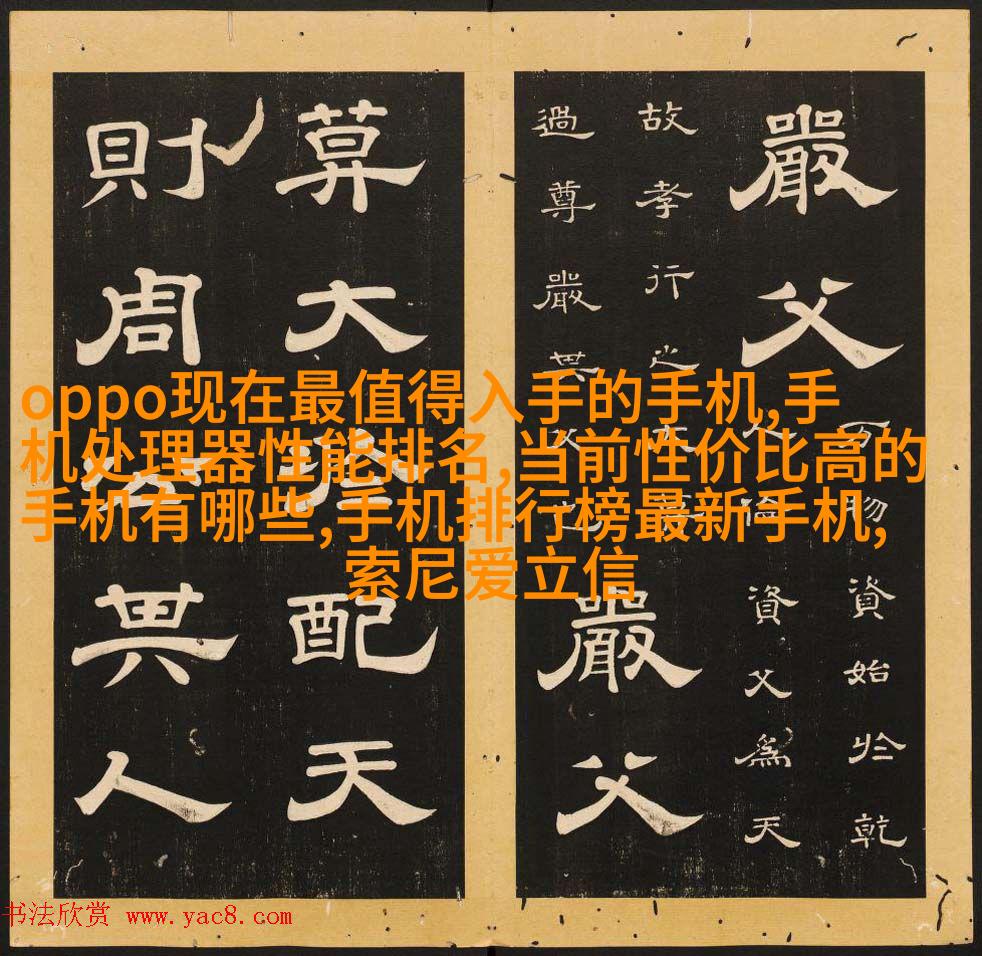 oppo现在最值得入手的手机,手
机处理器性能排名,当前性价比高的
手机有哪些,手机排行榜最新手机,
索尼爱立信
嚴父
万物資始於乾
人倫資父爲天
故孝行之大
過尊嚴其父也
嚴父
莫大於配天
則周公其人
书法欣赏 www.yac8.com